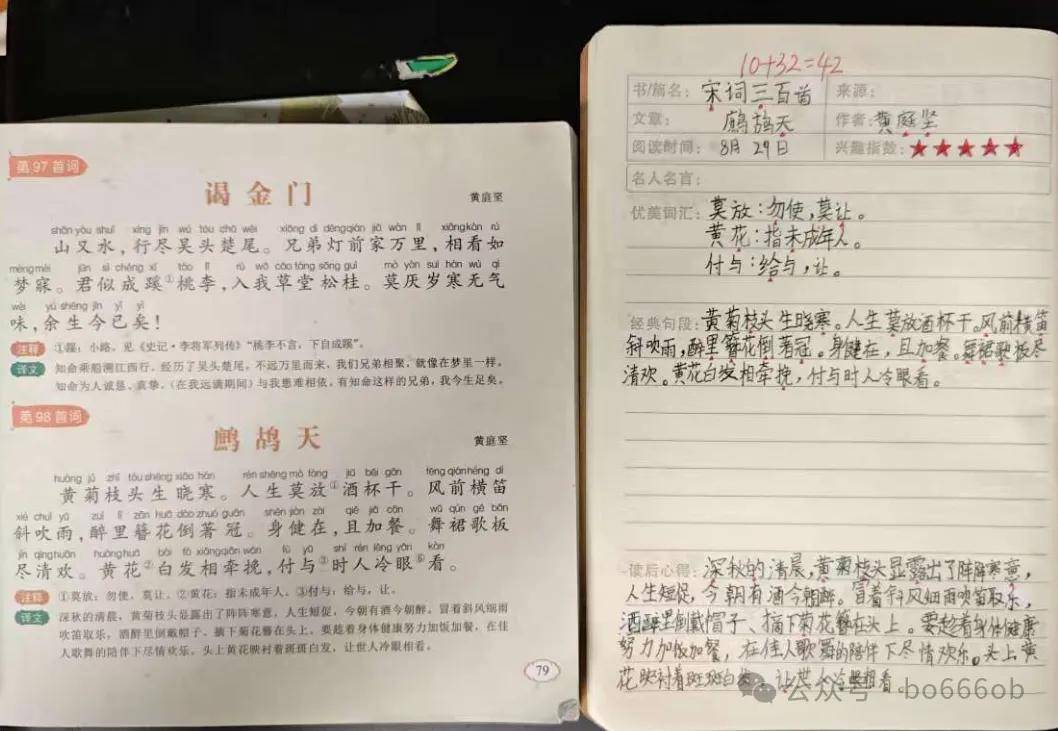 第97首词
谒金门
黄庭坚
shān yòu shuǐ xíng jìn wú tóu chǔ wěi xiōng dì dēng qián jiā wàn lǐ xiāng kàn rú
山又水，行尽吴头楚尾。兄弟灯前家万里，相看如
mèng mèi jūn sì chéng xī táo lǐ rù wǒ cǎo táng sōng guì mò yàn suì hán wú qì
梦寐。君似成蹊①桃李，入我草堂松桂。莫厌岁寒无气
wèi yú shēng jīn yǐ yǐ
味，余生今已矣！
注释 ①蹊：小路。见《史记·李将军列传》“桃李不言，下自成蹊”。
译文 知命乘船溯江西行，经历了吴头楚尾，不远万里而来，我们兄弟相聚，就像在梦里一样。
知命为人诚恳、真挚，《在我远谪期间》与我患难相依，有知命这样的兄弟，我今生足矣。
第98首词
鹧鸪天
黄庭坚
huáng jú zhī tóu shēng xiǎo hán rén shēng mò fàng jiǔ bēi gān fēng qián héng dí
黄菊枝头生晓寒。人生莫放①酒杯干。风前横笛
xié chuī yǔ zuì lǐ zān huā dào zhuó guān shēn jiàn zài qiě jiā cān wǔ qún gē bǎn
斜吹雨，醉里簪花倒著冠。身健在，且加餐。舞裙歌板
jìn qīng huān huáng huā bái fà xiāng qiān wǎn fù yǔ shí rén lěng yǎn kàn
尽清欢。黄花②白发相牵挽，付与③时人冷眼看。
注释 ①莫放：勿使，莫让。②黄花：指未成年人。③付与：给与，让。
译文 深秋的清晨，黄菊枝头显露出了阵阵寒意，人生短促，今朝有酒今朝醉。冒着斜风细雨
吹笛取乐，酒醉里倒戴帽子、摘下菊花簪在头上。要趁着身体健康努力加饭加餐，在佳
人歌舞的陪伴下尽情欢乐。头上黄花映衬着斑斑白发，让世人冷眼相看。
79
10+32=42
书/篇名：宋词三百首 来源：
文章：鹧鸪天 作者：黄庭坚
阅读时间：8月29日 兴趣指数：★★★★★
名人名言：
优美词汇：莫放：勿使，莫让。
黄花：指未成年人。
付与：给与，让。
经典句段：黄菊枝头生晓寒。人生莫放酒杯干。风前横笛
斜吹雨，醉里簪花倒著冠。身健在，且加餐。舞裙歌板尽
清欢。黄花白发相牵挽，付与时人冷眼看。
读后心得：深秋的清晨，黄菊枝头显露出了阵阵寒意，
人生短促，今朝有酒今朝醉。冒着斜风细雨吹笛取乐，
酒醉里倒戴帽子、摘下菊花簪在头上。要趁着身体健康
努力加饭加餐，在佳人歌舞的陪伴下尽情欢乐。头上黄
花映衬着斑斑白发，让世人冷眼相看。
公众号 bo666ob